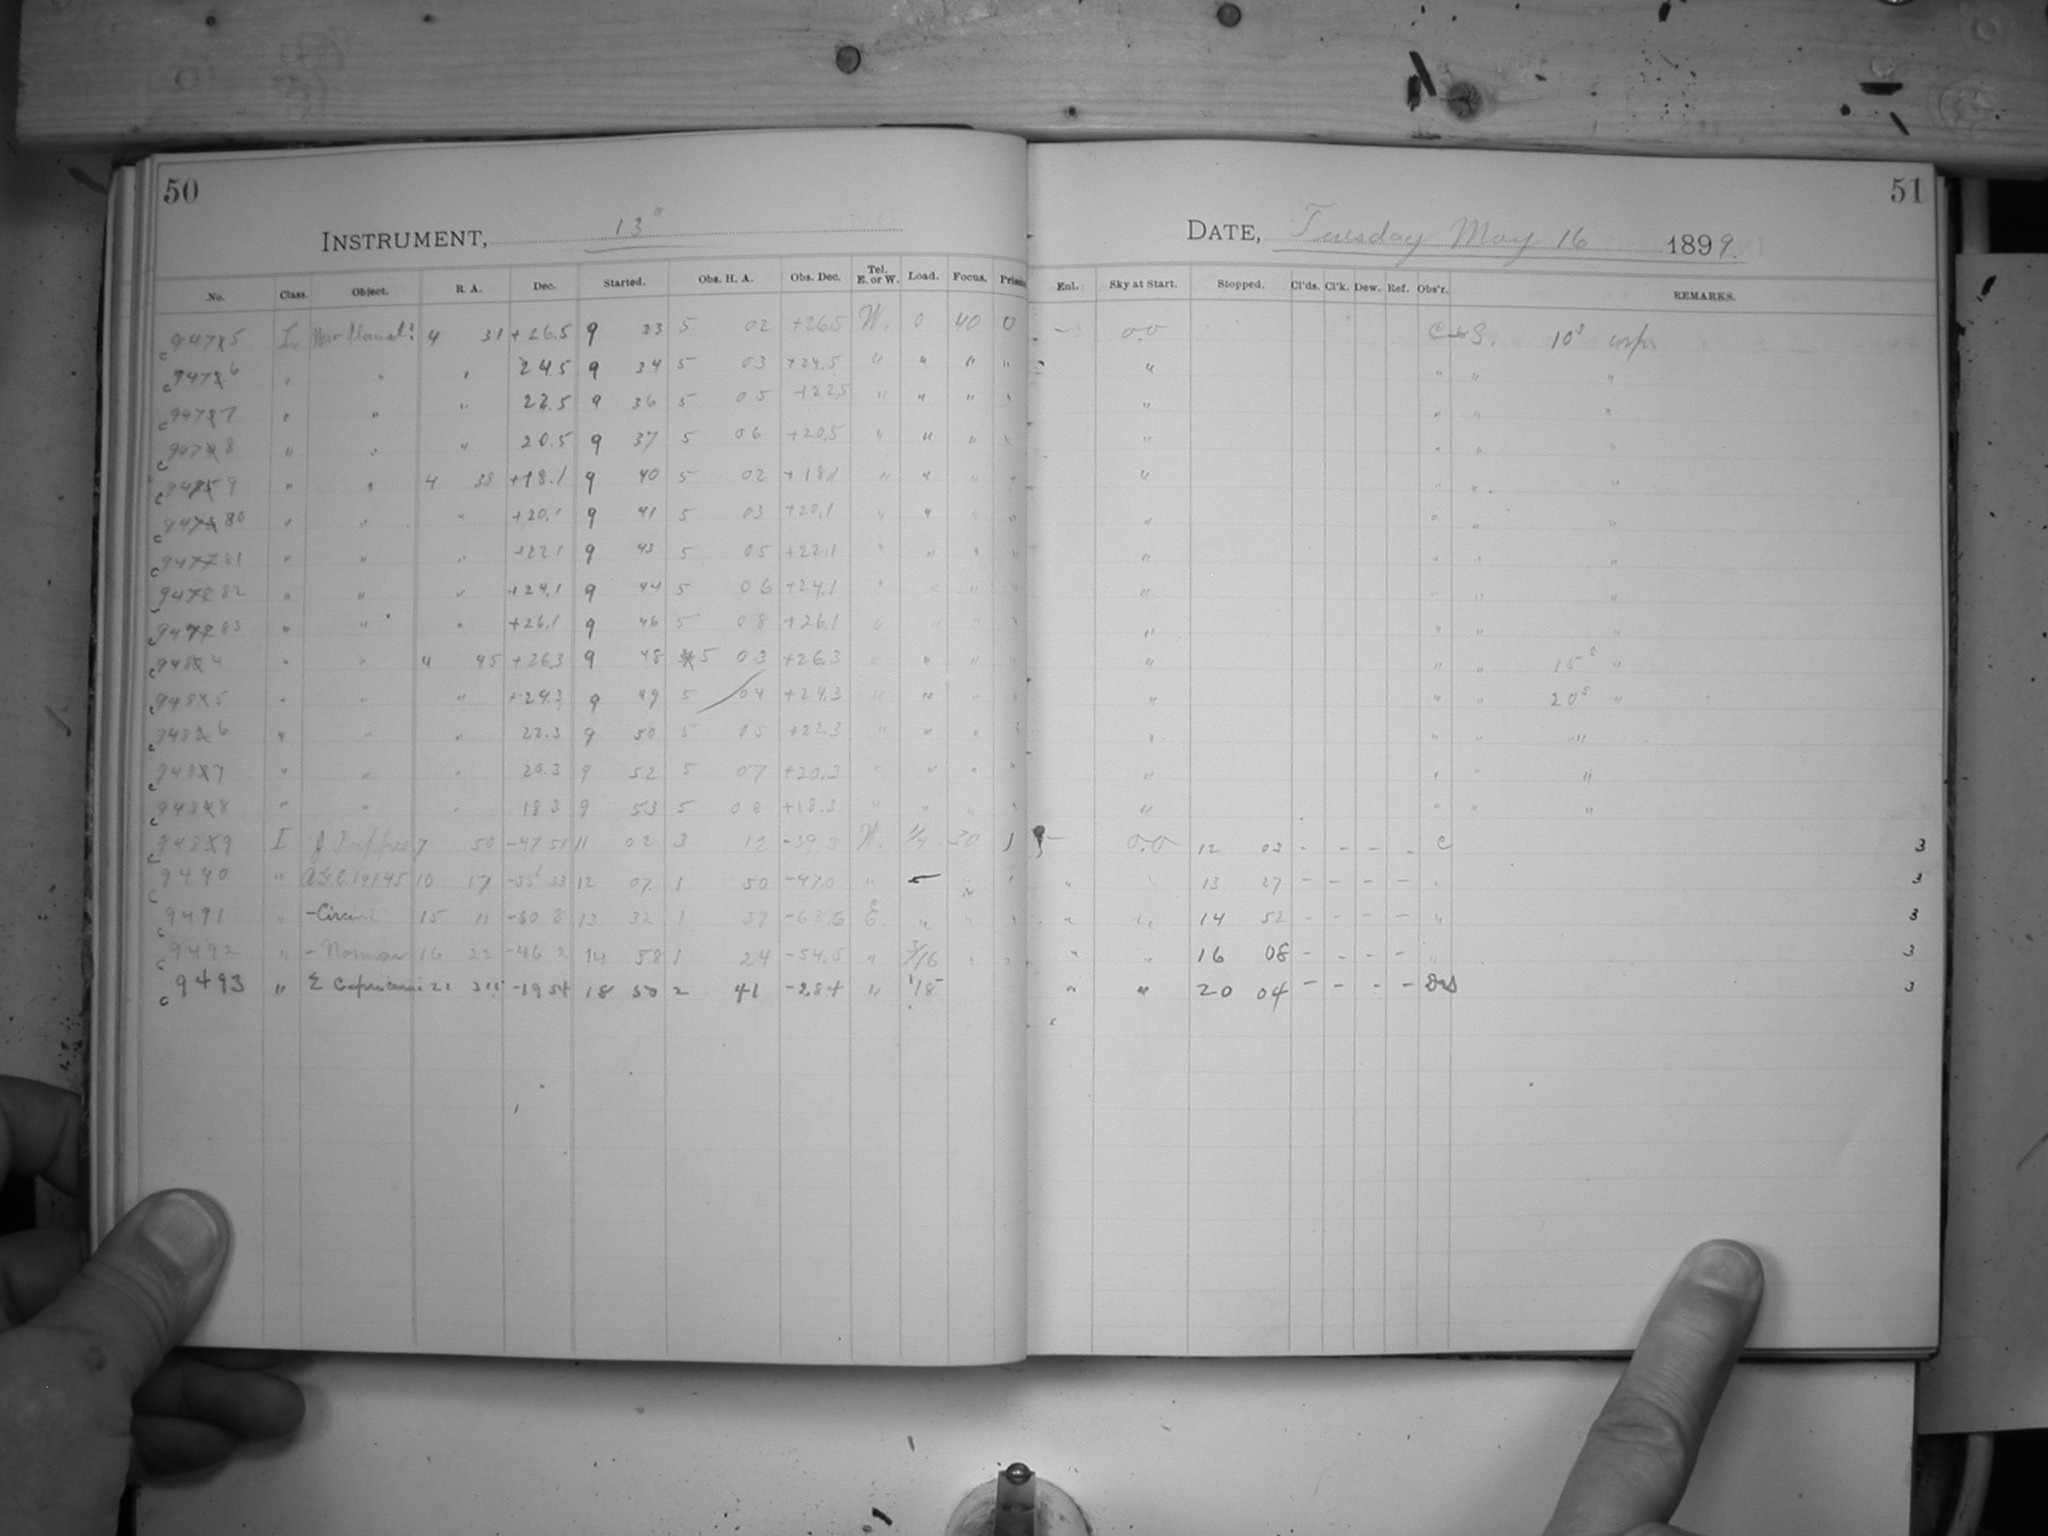 50
INSTRUMENT, 13"
No. Class. Object. R. A. Dec. Started. Obs. H. A. Obs. Dec. Tel. E. or W. Load. Focus. Prism
c 9475 L 4 31 +26.5 9 33 5 02 +26.5 W. 0 40 0
c 9476 " " " 24.5 9 34 5 03 +24.5 " " " "
c 9477 " " " 22.5 9 36 5 05 +22.5 " " " "
c 9478 " " " 20.5 9 37 5 06 +20.5 " " " "
c 9479 " " 4 38 +18.1 9 40 5 02 +18.1 " " " "
c 9480 " " " +20.1 9 41 5 03 +20.1 " " " "
c 9481 " " " +22.1 9 43 5 05 +22.1 " " " "
c 9482 " " " +24.1 9 44 5 06 +24.1 " " " "
c 9483 " " " +26.1 9 46 5 08 +26.1 " " " "
c 9484 " " 4 45 +26.3 9 48 5 03 +26.3 " " " "
c 9485 " " " +24.3 9 49 5 04 +24.3 " " " "
c 9486 " " " 22.3 9 50 5 05 +22.3 " " " "
c 9487 " " " 20.3 9 52 5 07 +20.3 " " " "
c 9488 " " " 18.3 9 53 5 08 +18.3 " " " "
c 9489 I J Puppis 7 50 -47 51 11 02 3 12 -39.3 W. 1/4 50 1
c 9490 " A.G.C. 14145 10 17 -55 33 12 07 1 50 -47.0 " " "
c 9491 " -Circini 15 11 -60 8 13 32 1 37 -68.6 E. " " "
c 9492 " -Normae 16 22 -46 2 14 58 1 24 -54.5 " 3/16 " "
c 9493 " Σ Capricorni 21 -19 54 18 50 2 41 -28.4 " 1/5
51
DATE, Tuesday May 16 1899.
Enl. Sky at Start. Stopped. Cl'ds. Cl'k. Dew. Ref. Obs'r. REMARKS.
- 0.0 C & S. 10s exp.
" " " "
" " " "
" " " "
" " " "
" " " "
" " " "
" " " "
" " " "
" " " 15s "
" " " 20s "
" " " "
" " " "
" " " "
- 0.0 12 03 - - - - C 3
" " 13 27 - - - - " 3
" " 14 52 - - - - " 3
" " 16 08 - - - - " 3
" " 20 04 - - - - 3